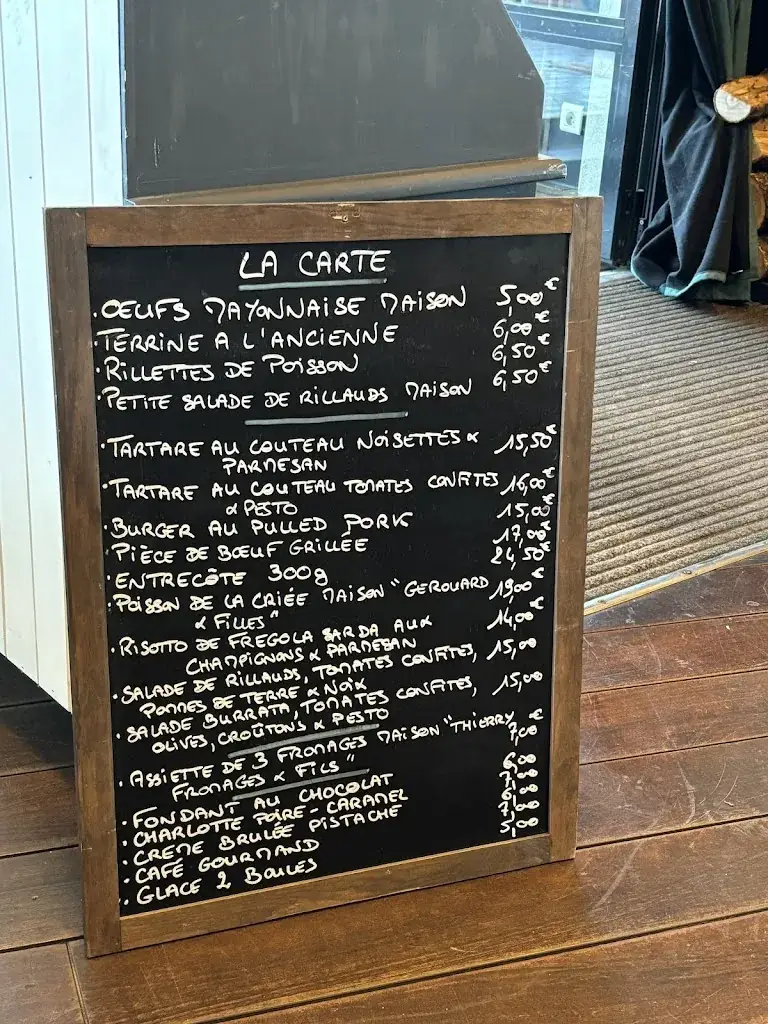 LA CARTE
· OEUFS MAYONNAISE MAISON 5,00€
· TERRINE A L'ANCIENNE 6,00€
· RILLETTES DE POISSON 6,50€
· PETITE SALADE DE RILLAUDS MAISON 6,50€
· TARTARE AU COUTEAU NOISETTES & 15,50€
PARMESAN
· TARTARE AU COUTEAU TOMATES CONFITES 16,00€
& PESTO
· BURGER AU PULLED PORK 15,00€
· PIÈCE DE BŒUF GRILLÉE 17,00€
· ENTRECÔTE 300g 24,50€
· POISSON DE LA CRIÉE MAISON "GEROUARD 19,00€
& FILLES"
· RISOTTO DE FREGOLA SARDA AUX 14,00€
CHAMPIGNONS & PARMESAN
· SALADE DE RILLAUDS, TOMATES CONFITES, 15,00
POMMES DE TERRE & NOIX
· SALADE BURRATA, TOMATES CONFITES, 15,00
OLIVES, CROÛTONS & PESTO
· ASSIETTE DE 3 FROMAGES MAISON "THIERRY 7,00€
FROMAGES & FILS"
· FONDANT AU CHOCOLAT 6,00
· CHARLOTTE POIRE-CARAMEL 7,00
· CREME BRULÉE PISTACHE 6,00
· CAFÉ GOURMAND 7,00
· GLACE 2 BOULES 5,00